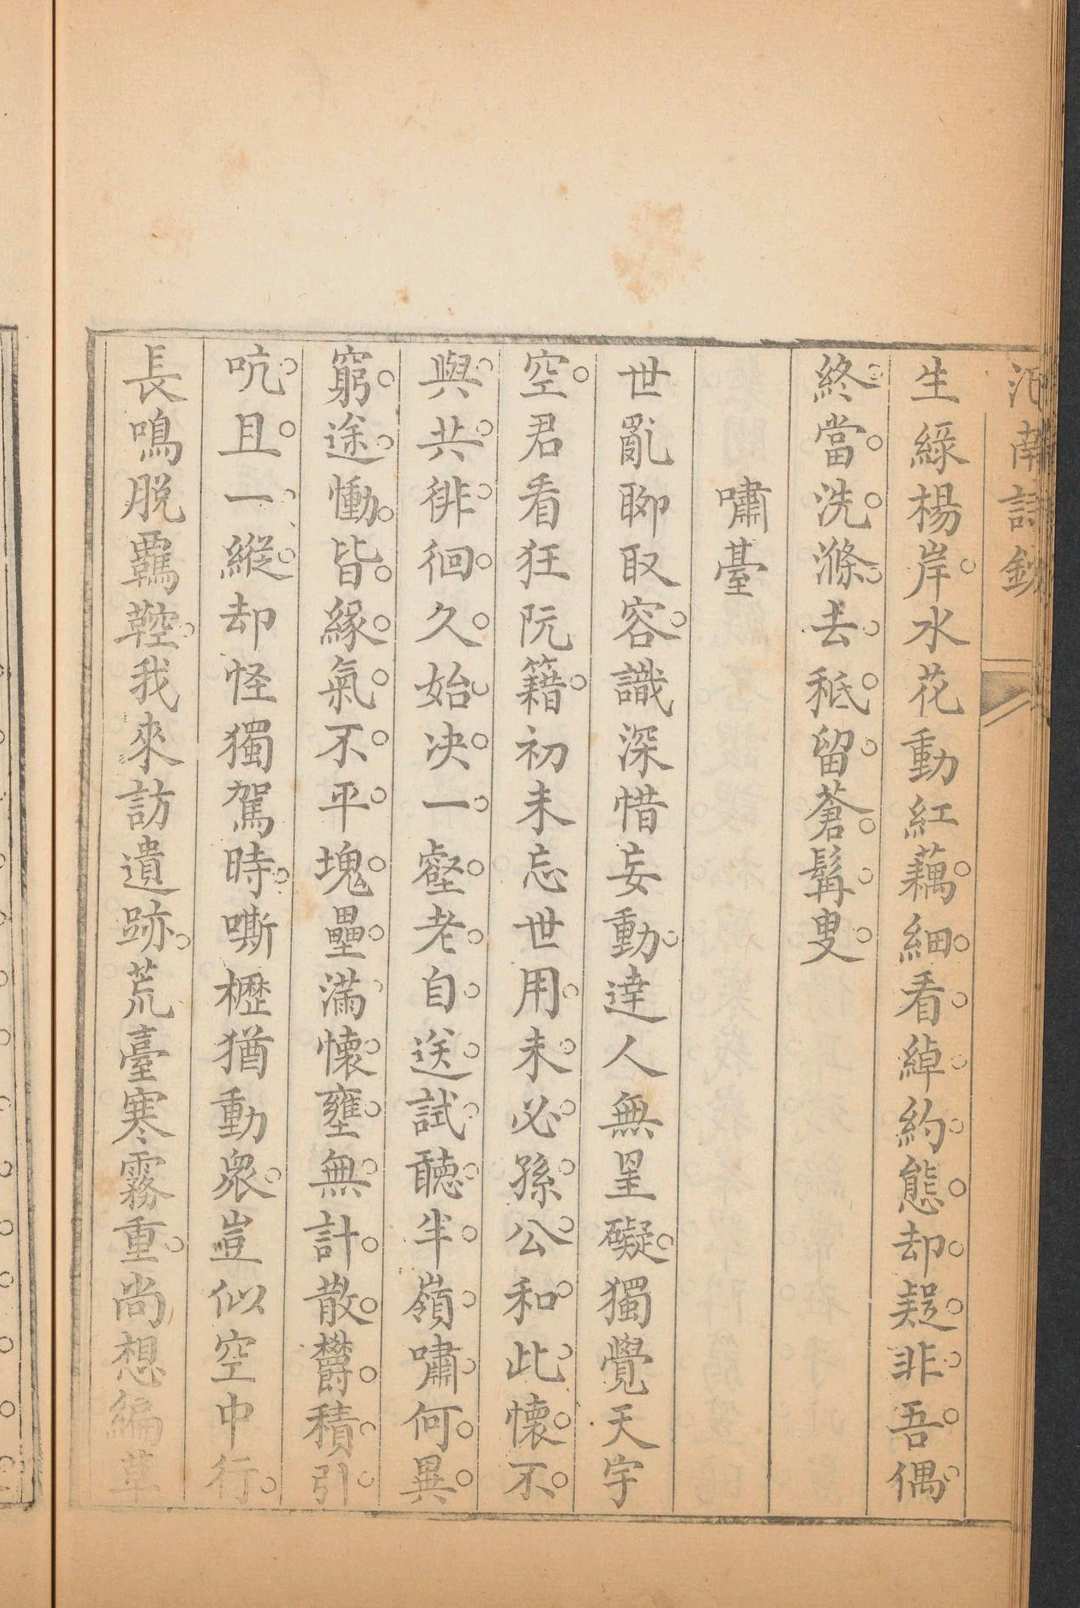 汚南詩鈔
生綠楊岸水花動紅藕細看綽約態却疑非吾偶
終當洗滌去秪留蒼髯叟
嘯臺
世亂聊取容識深惜妄動達人無罣礙獨覺天宇
空君看狂阮籍初未忘世用未必孫公和此懷不
與共徘徊久始决一壑老自送試聽半嶺嘯何異
窮途慟皆緣氣不平塊壘滿懷壅無計散欝積引
吭且一縱却怪獨駕時嘶櫪猶動衆豈似空中行
長鳴脫羈鞚我來訪遺跡荒臺寒霧重尚想編草